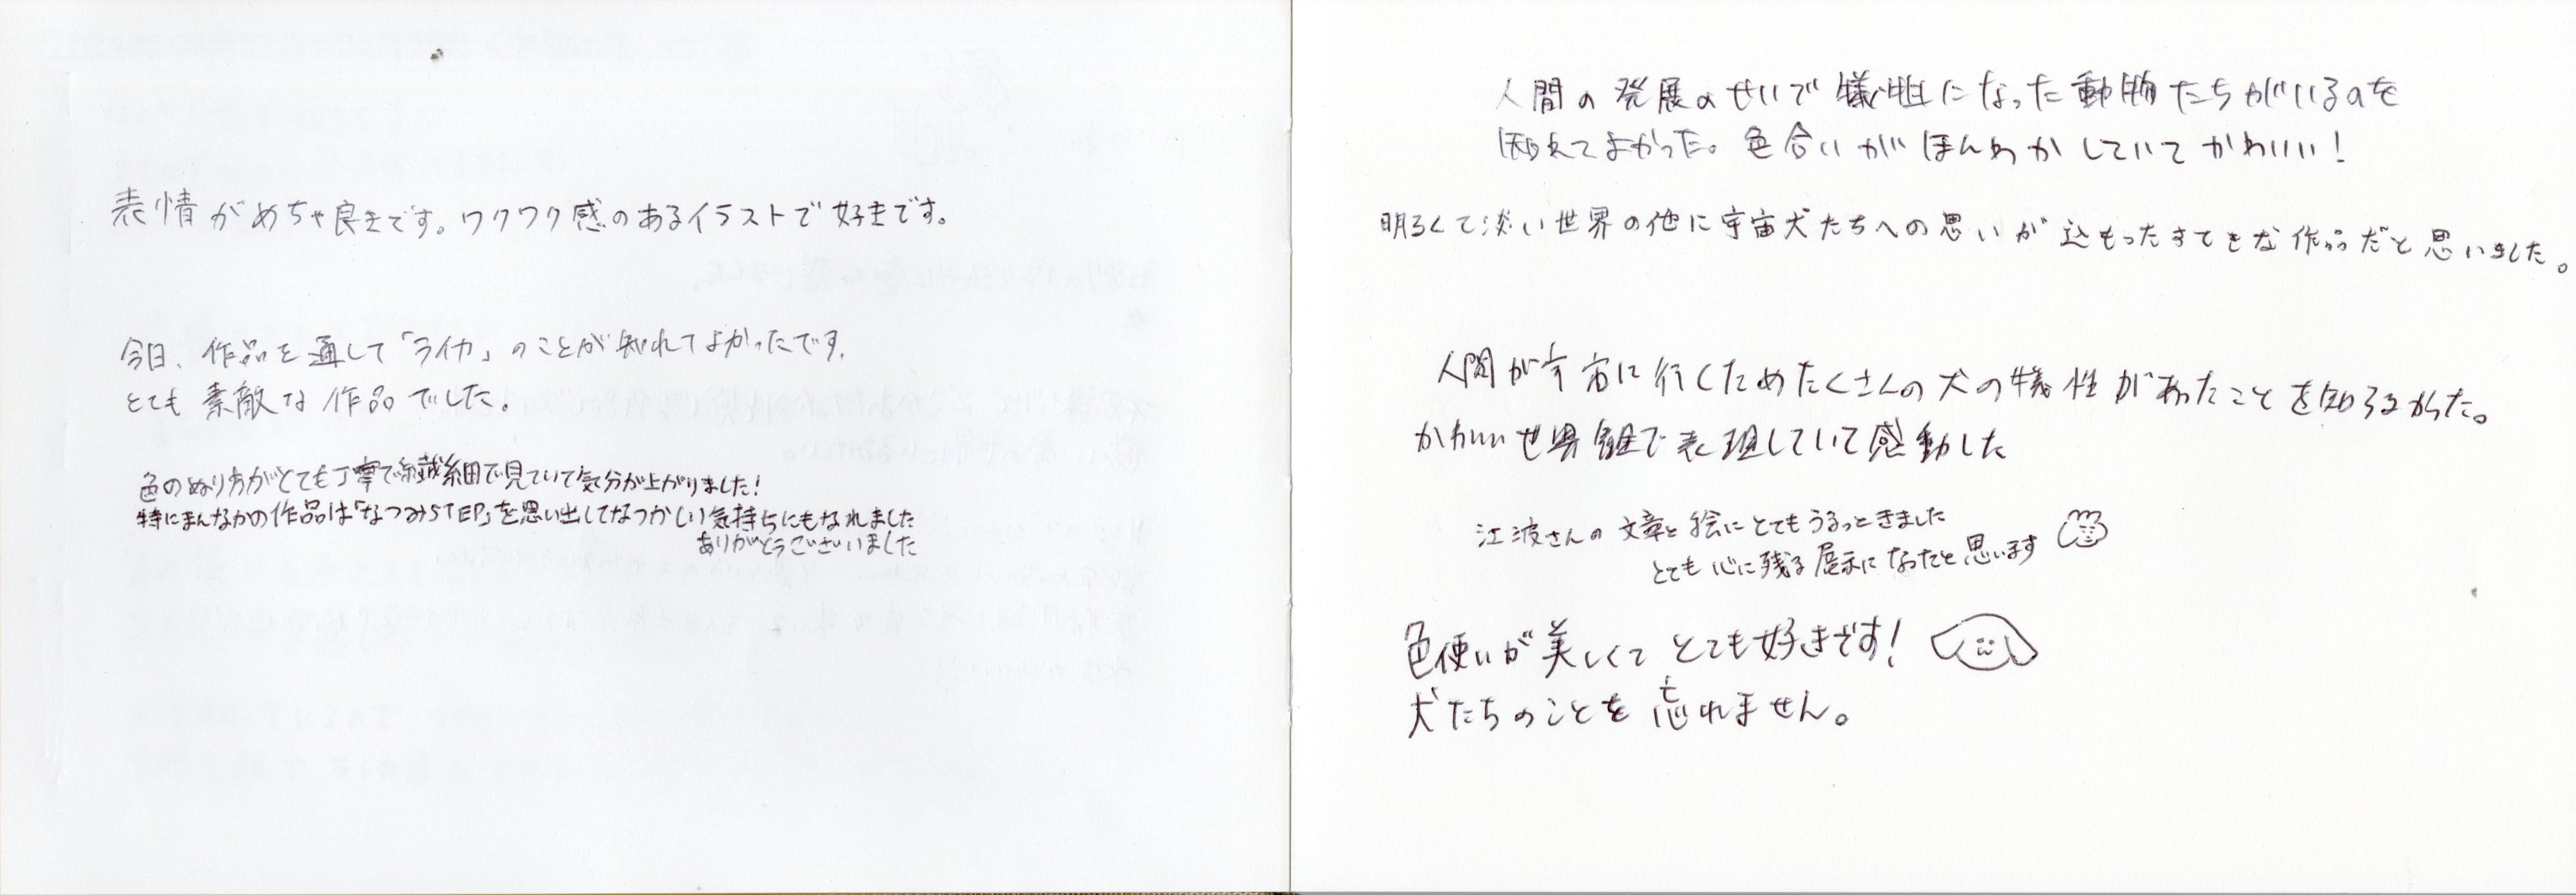 表情がめちゃ良きです。ワクワク感のあるイラストで好きです。
今日、作品を通して「ライカ」のことが知れてよかったです。
とても素敵な作品でした。
色のぬり方がとても丁寧で繊細で見ていて気分が上がりました!
特にまんなかの作品は「なつみSTEP」を思い出してなつかしい気持ちにもなれました
ありがとうございました
人間の発展のせいで犠牲になった動物たちがいるのを
知れてよかった。色合いがほんわかしていてかわいい!
明るくて淡い世界の他に宇宙犬たちへの思いが込もったすてきな作品だと思いました。
人間が宇宙に行くためたくさんの犬の犠牲があったことを知らなかった。
かわいい世界観で表現していて感動した
江波さんの文章と絵にとてもうるっときました
とても心に残る展示になったと思います
色使いが美しくてとても好きです!
犬たちのことを忘れません。